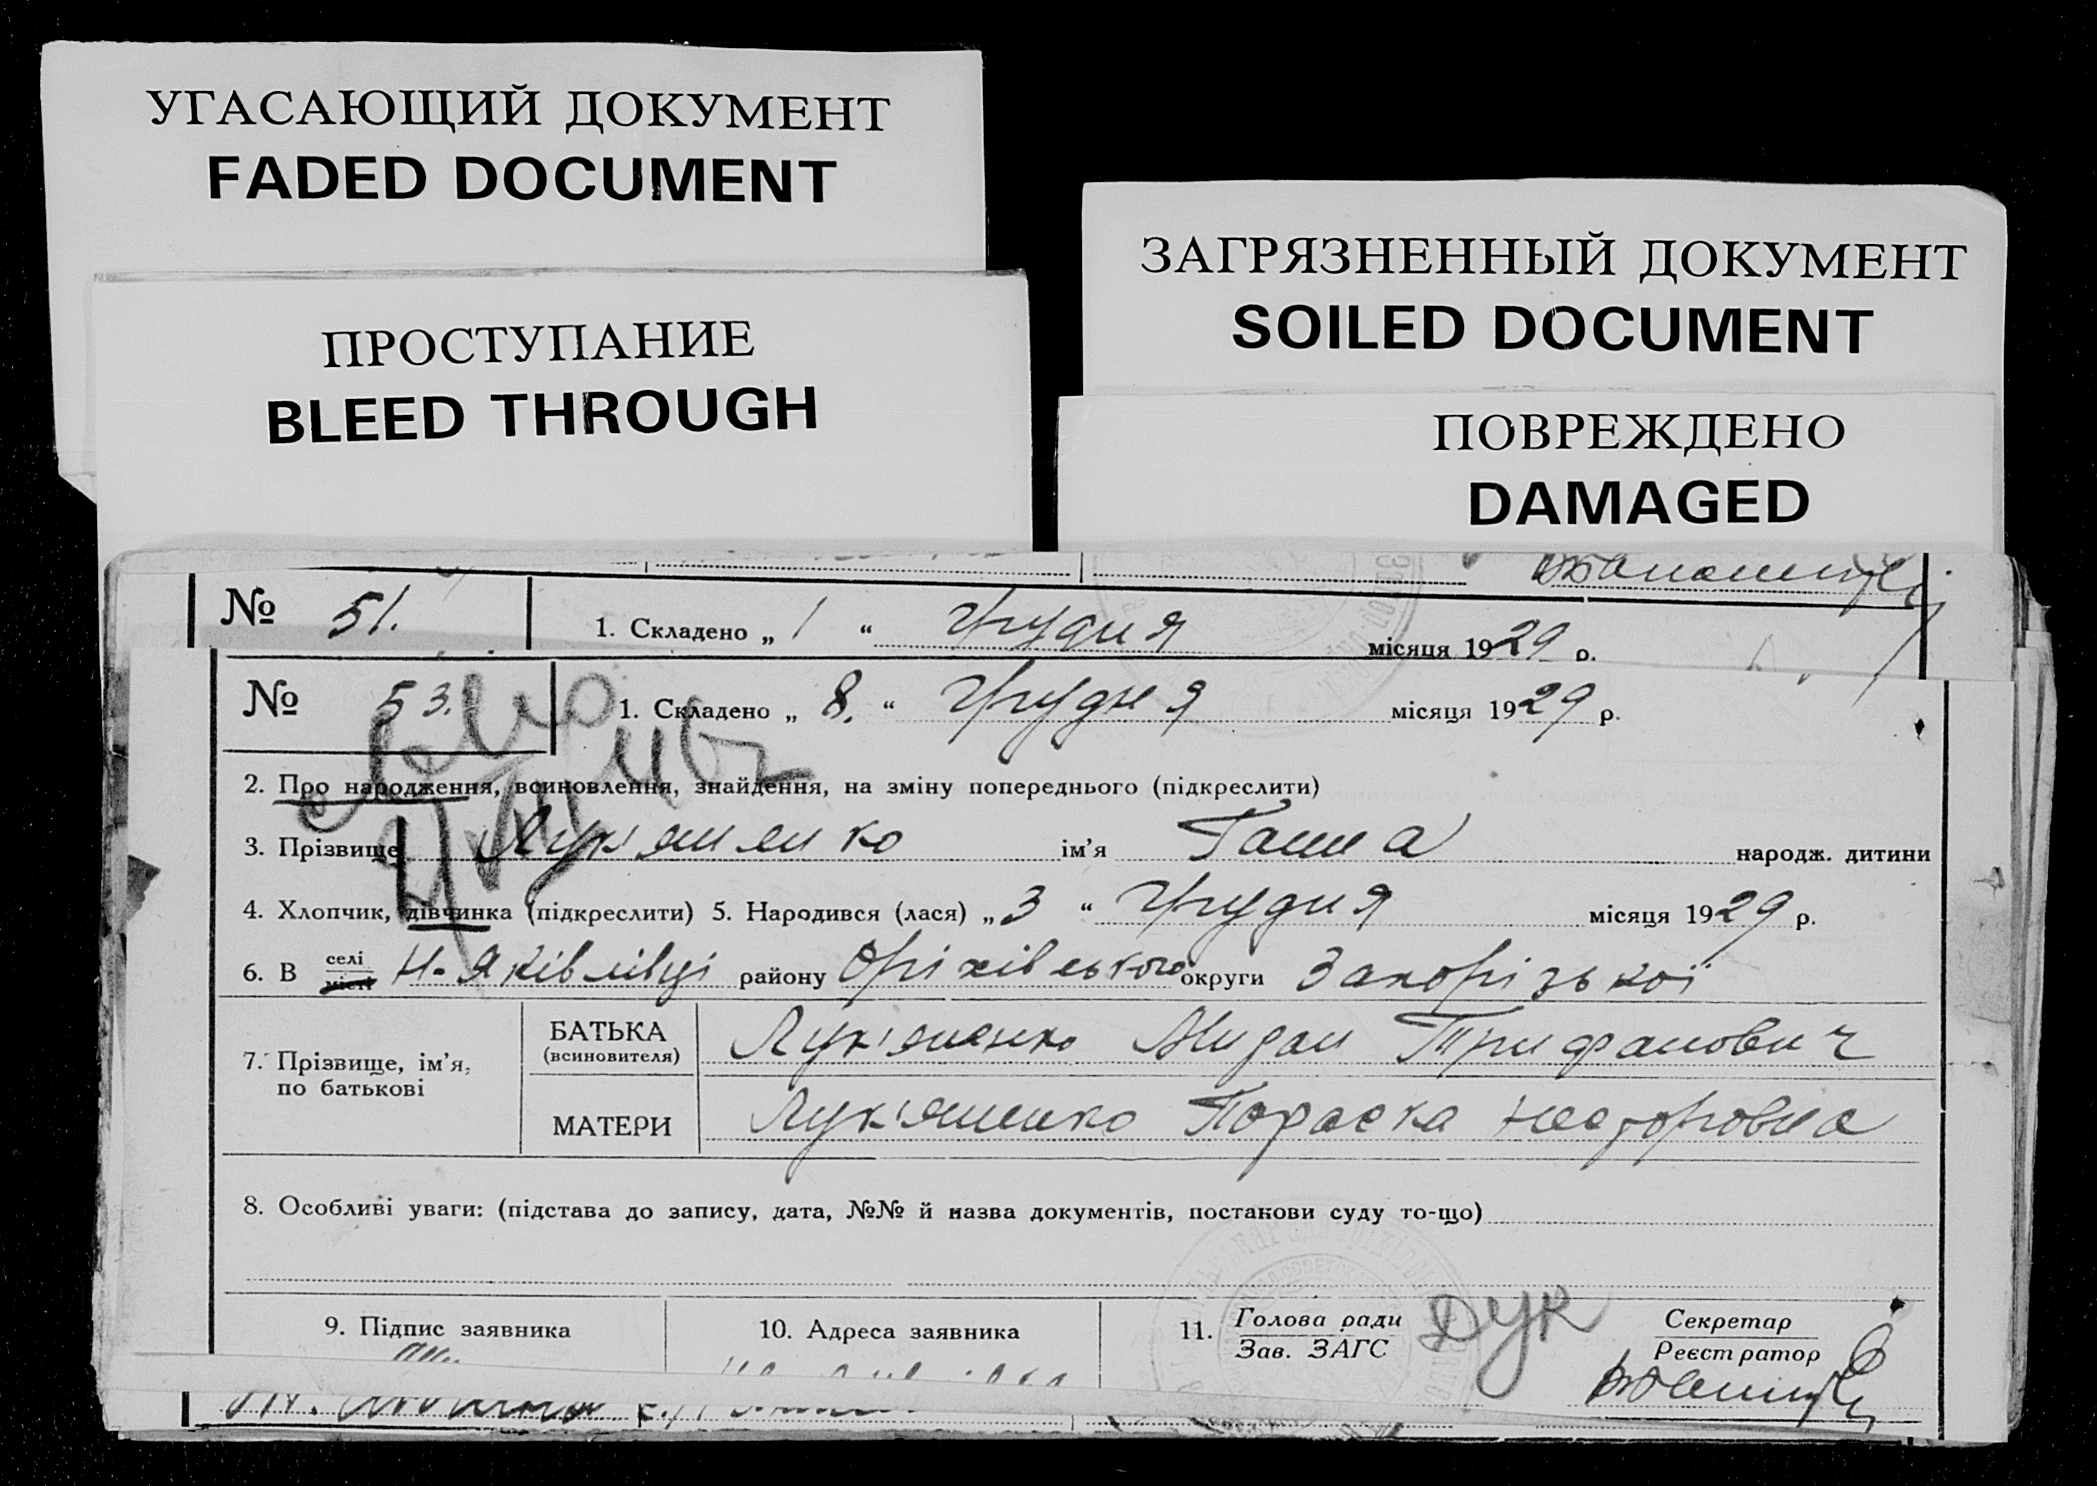 УГАСАЮЩИЙ ДОКУМЕНТ
FADED DOCUMENT
ПРОСТУПАНИЕ
BLEED THROUGH
ЗАГРЯЗНЕННЫЙ ДОКУМЕНТ
SOILED DOCUMENT
ПОВРЕЖДЕНО
DAMAGED
№ 51. 1. Складено „ 1 “ грудня місяця 1929 р.
№ 53. 1. Складено „ 8. “ грудня місяця 1929 р.
2. Про народження, всиновлення, знайдення, на зміну попереднього (підкреслити)
3. Прізвище Лук'яненко ім'я Ганна народж. дитини
4. Хлопчик, дівчинка (підкреслити) 5. Народився (лася) „ 3 “ грудня місяця 1929 р.
6. В селі місті Н-Яківлівці району Оріхівського округи Запорізької
7. Прізвище, ім'я, по батькові
БАТЬКА (всиновителя) Лук'яненко Трифанович
МАТЕРИ Лук'яненко Параска Несторовна
8. Особливі уваги: (підстава до запису, дата, №№ й назва документів, постанови суду то-що)
9. Підпис заявника
10. Адреса заявника
11. Голова ради Зав. ЗАГС
Секретар Реєстратор